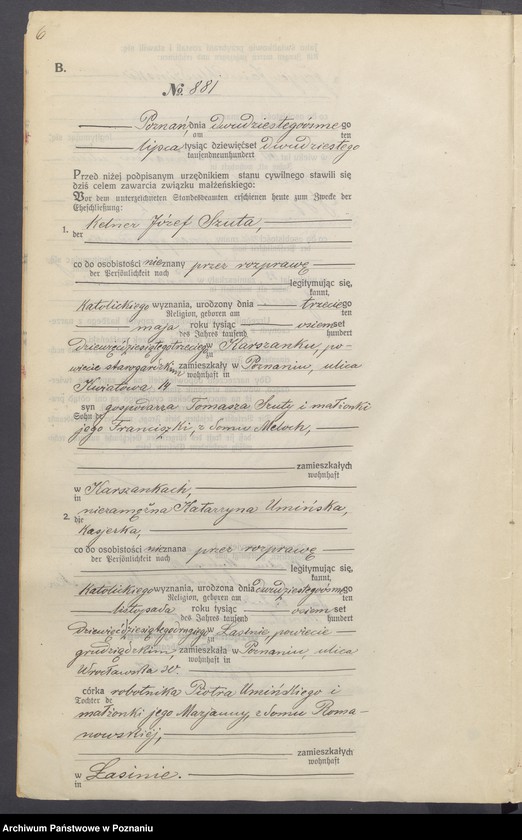 6
B.
No. 881
Poznań, dnia dwudziestegoósmego
am ten
lipca tysiąc dziewięćset dwudziestego
tausendneunhundert
Przed niżej podpisanym urzędnikiem stanu cywilnego stawili się
dziś celem zawarcia związku małżeńskiego:
Vor dem unterzeichneten Standesbeamten erschienen heute zum Zwecke der
Eheschließung:
1. Kelner Józef Szuta,
der
co do osobistości nieznany przez rozprawę
der Persönlichkeit nach
legitymując się,
kannt,
Katolickiego wyznania, urodzony dnia trzeciego
Religion, geboren am ten
maja roku tysiąc osiemset
des Jahres tausend hundert
w Karszanku, po-
zu
wiecie starogardzkim zamieszkały w Poznaniu, ulica
wohnhaft in
Kwiatowa 14
syn gospodarza Tomasza Szuty i małżonki
Sohn des
jego Franciszki, z domu Meloch,
zamieszkałych
wohnhaft
w Karszankach,
in
2. niezamężna Katarzyna Umińska,
die
kasjerka,
co do osobistości nieznana przez rozprawę
der Persönlichkeit nach
legitymując się,
kannt,
Katolickiego wyznania, urodzona dnia dwudziestegoósmego
Religion, geboren am ten
listopada roku tysiąc osiemset
des Jahres tausend hundert
w Łasinie powiecie
zu
grudziądzkim zamieszkała w Poznaniu, ulica
wohnhaft in
Wrocławska
córka robotnika Piotra Umińskiego i
Tochter des
małżonki jego Marjanny, z domu Roma-
nowskiéj,
zamieszkałych
wohnhaft
w Łasinie.
in
Archiwum Państwowe w Poznaniu